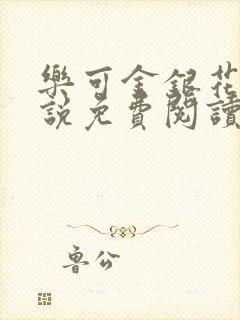 樂可金銀花
說免費閱讀
魯公